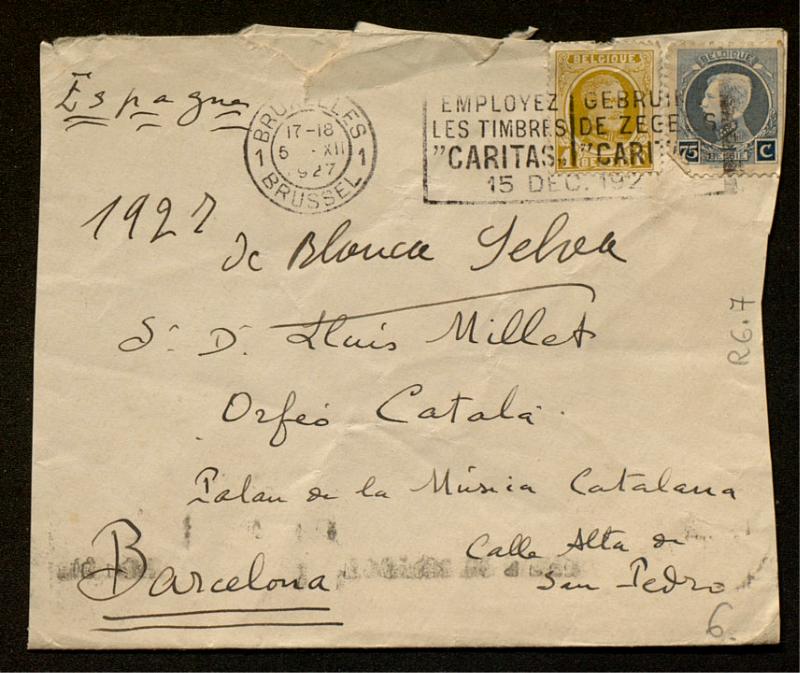 Espagne
BRUXELLES
17-18
1 5 -XII 1
1927
BRUSSEL
EMPLOYEZ GEBRUI
LES TIMBRES DE ZEGELS
"CARITAS„ "CARIT
15 DEC. 192
BELGIQUE
BELGIQUE
75 BELGIË C
1927
de Blanca Selva
Sr. D. Lluis Millet
Orfeó Català
Palau de la Música Catalana
Calle Alta de
San Pedro
Barcelona
R6.7
6.